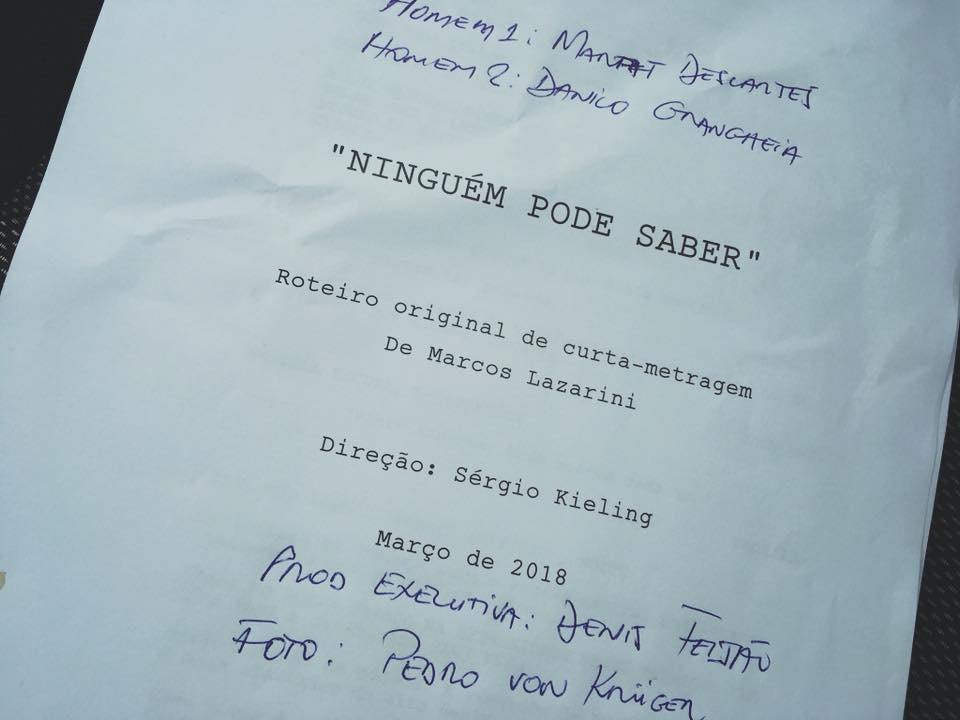 Homem 1: Marat Descartes
Homem 2: Danilo Grangheia
"NINGUÉM PODE SABER"
Roteiro original de curta-metragem
De Marcos Lazarini
Direção: Sérgio Kieling
Março de 2018
Prod Executiva: Denis Feijão
Foto: Pedro von Krüger